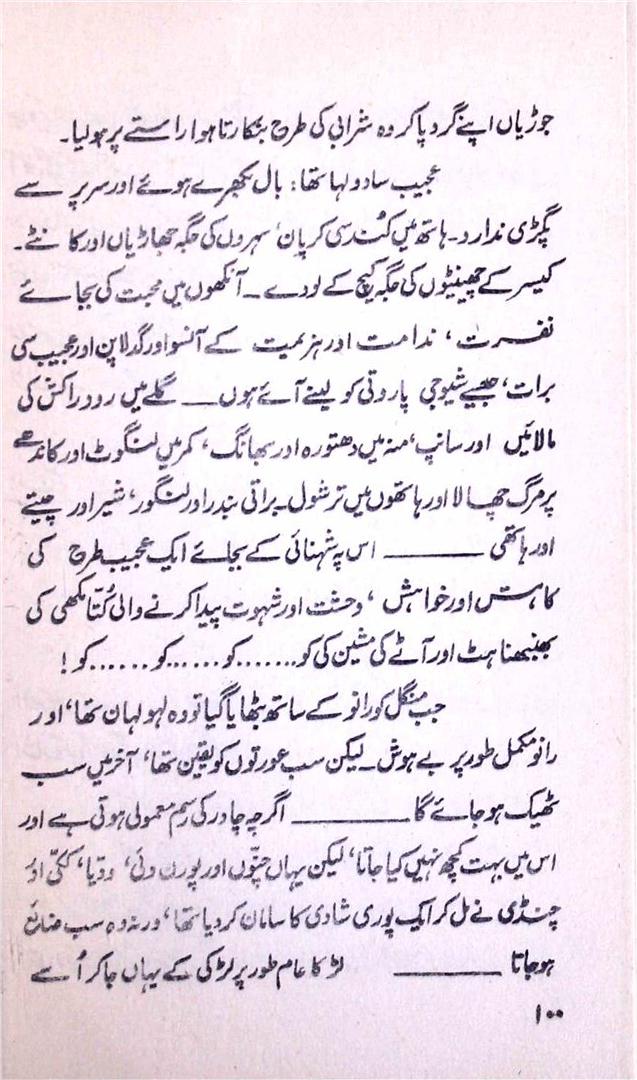 جوڑیاں اپنے گرد پا کر وہ شرابی کی طرح بنکارتا ہوا راستے پر ہو لیا۔
عجیب سا دولہا تھا: بال بکھرے ہوئے اور سر پر سے
پگڑی ندارد۔ ہاتھ میں کُند سی کرپان، سہروں کی جگہ جھاڑیاں اور کانٹے۔
کیسر کے چھینٹوں کی جگہ کیچ کے لودے۔ آنکھوں میں محبت کی بجائے
نفرت، ندامت اور ہزیمت کے آنسو اور گدلا پن اور عجیب سی
برات، جیسے شیوجی پاروتی کو لینے آئے ہوں — گلے میں رودراکش کی
مالائیں اور سانپ، منہ میں دھتورہ اور بھانگ، کمر میں لنگوٹ اور کاندھے
پر مرگ چھالا اور ہاتھوں میں ترشول۔ براتی بندر اور لنگور، شیر اور چیتے
اور ہاتھی ——— اس پہ شہنائی کے بجائے ایک عجیب طرح کی
کاہش اور خواہش، وحشت اور شہوت پیدا کرنے والی کُتا مکھی کی
بھنبھناہٹ اور آٹے کی مشین کی کو.......کو......کو......کو!
جب منگل کو رانو کے ساتھ بٹھایا گیا تو وہ لہولہان تھا، اور
رانو مکمل طور پر بے ہوش۔ لیکن سب عورتوں کو یقین تھا، آخر میں سب
ٹھیک ہو جائے گا ——— اگرچہ چادر کی رسم معمولی ہوتی ہے اور
اس میں بہت کچھ نہیں کیا جاتا، لیکن یہاں چنّوں اور پورن دئی، ودّیا، کئی اور
چنڈی نے مل کر ایک پوری شادی کا سامان کر دیا تھا، ورنہ وہ سب ضائع
ہو جاتا ——— لڑکا عام طور پر لڑکی کے یہاں جا کر اُسے
۱۰۰